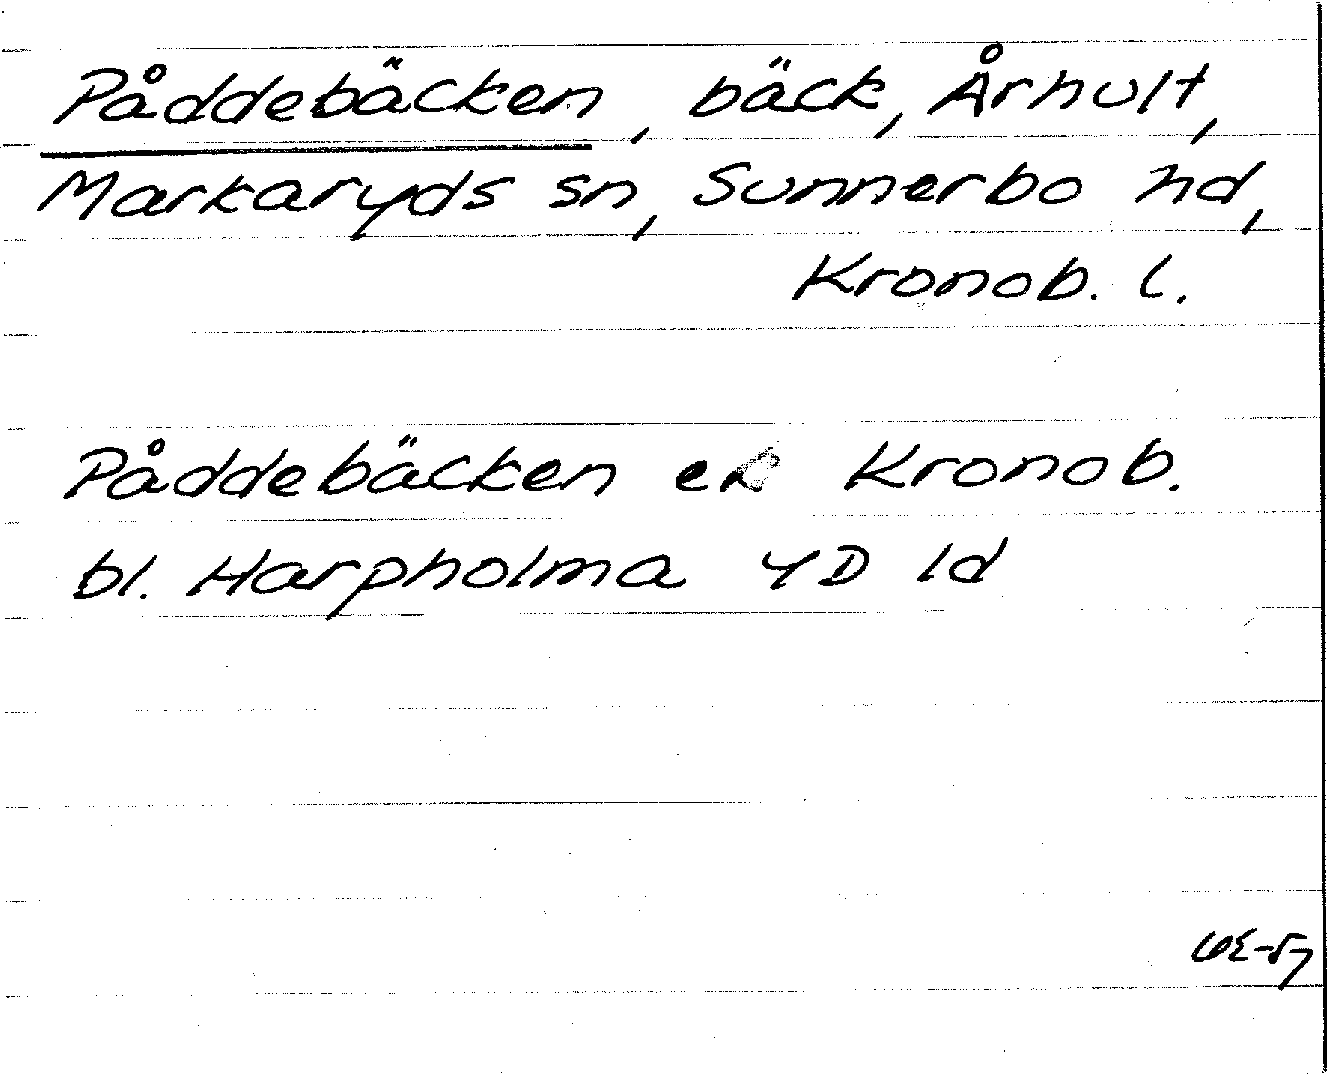 Påddebäcken, bäck, Århult,
Markaryds sn, Sunnerbo hd,
Kronob. l.
Påddebäcken ek Kronob.
bl. Harpholma 4D 1d